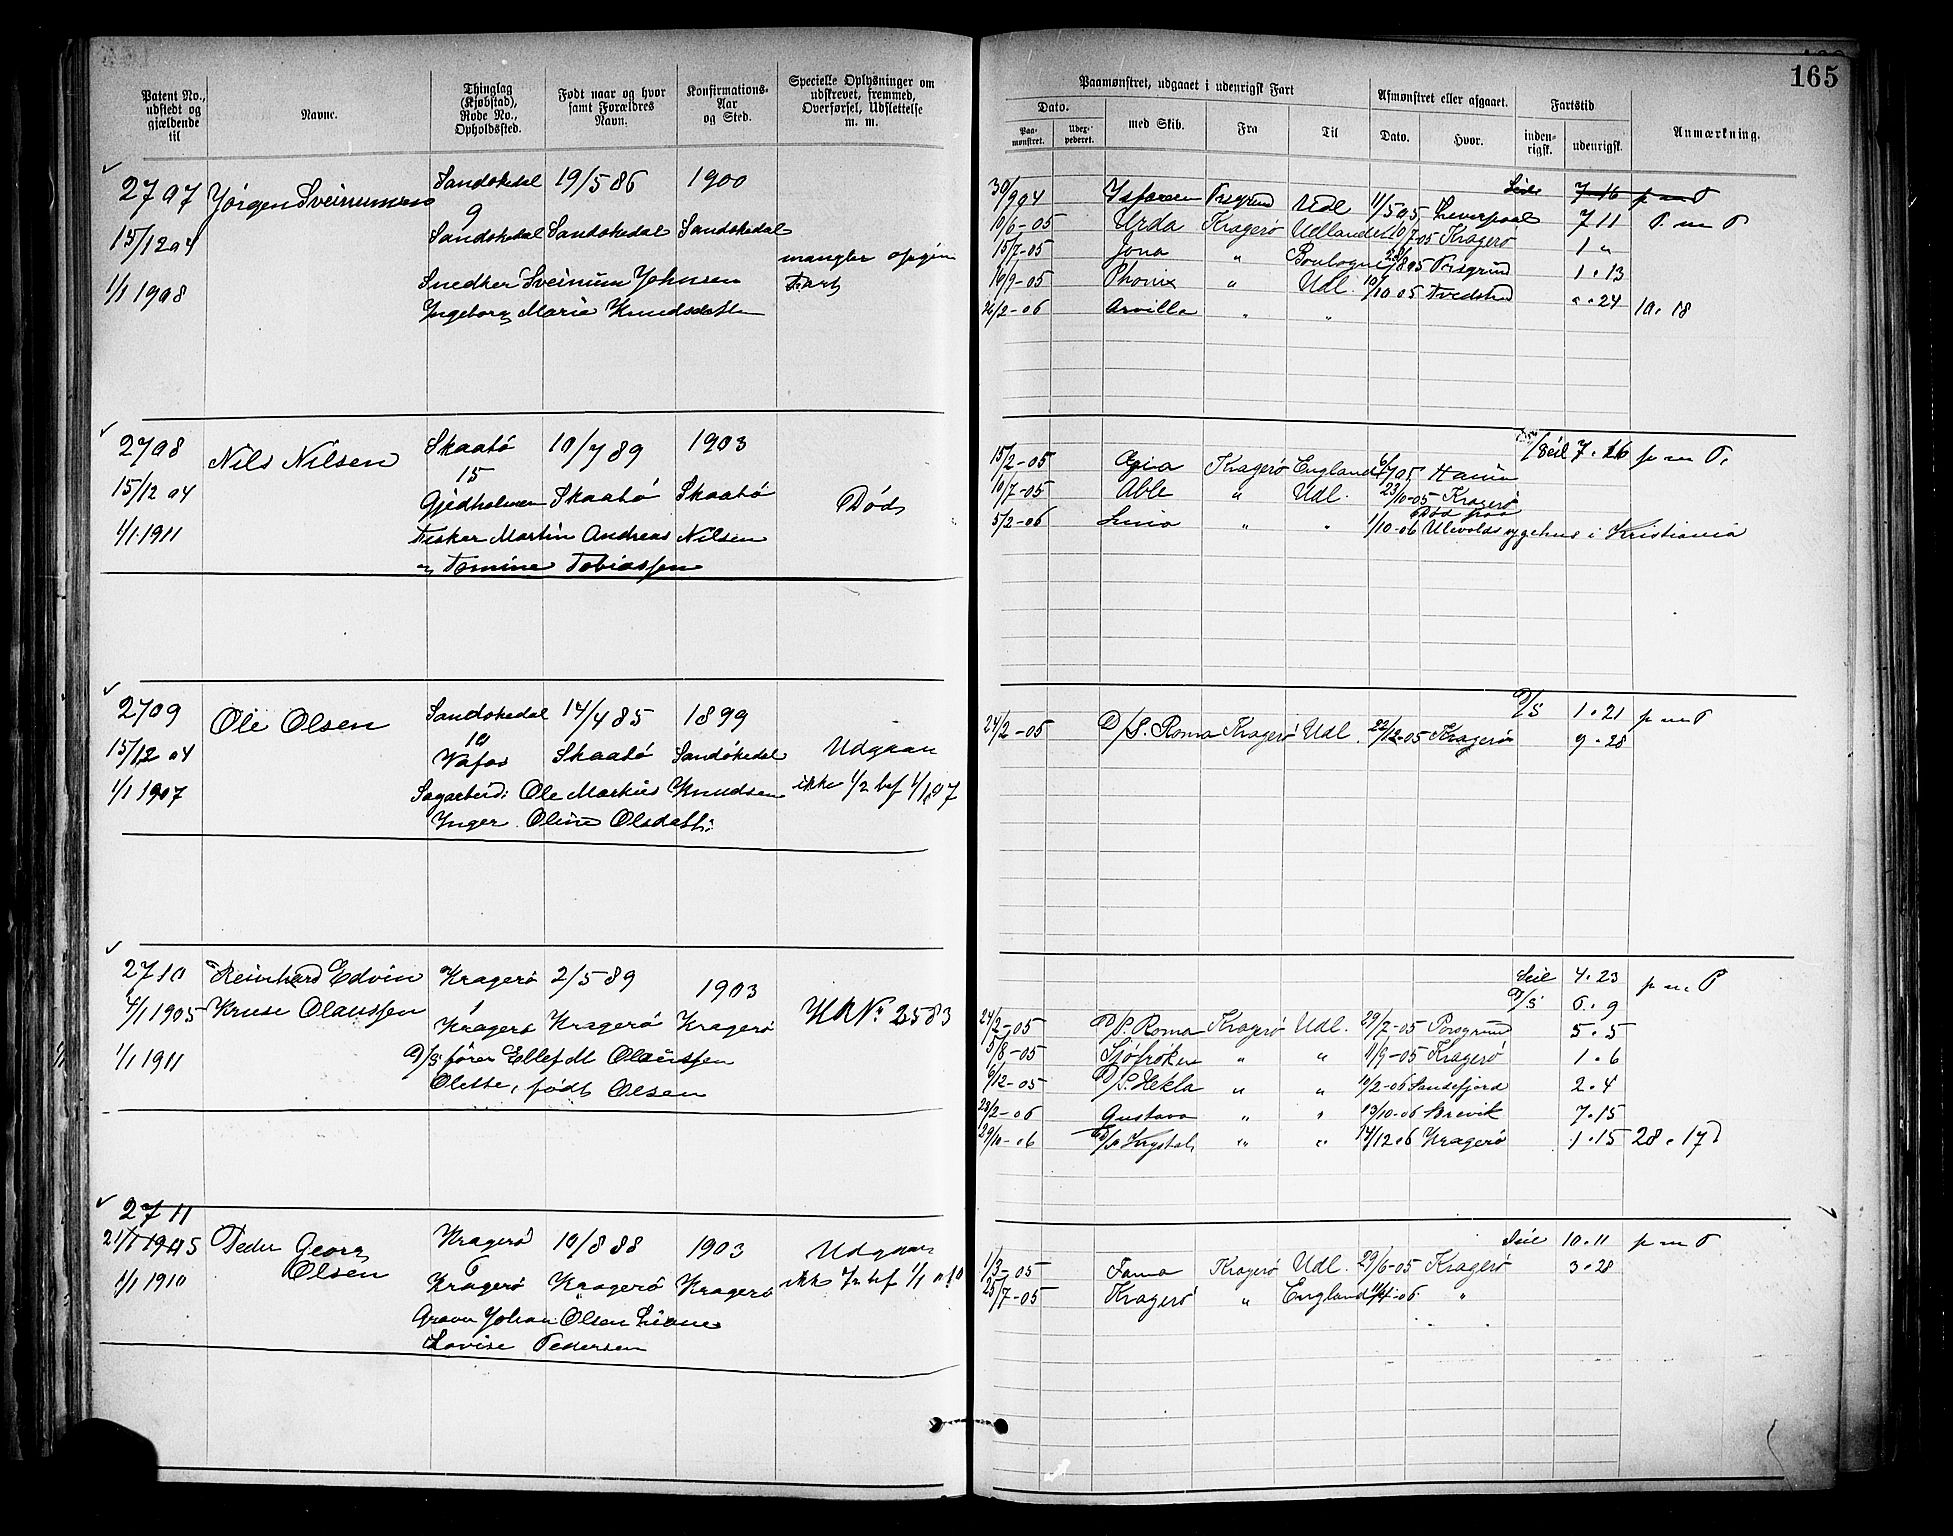 165
Patent No., udstedt og gjældende til
Navne.
Thinglag (Kjøbstad), Rode No., Opholdssted.
Født naar og hvor samt Forældres Navn.
Konfirmations-Aar og Sted.
Specielle Oplysninger om udskrevet, fremmed, Overførsel, Udslettelse m. m.
Paamønstret, udgaaet i udenrigsk Fart
Afmønstret eller afgaaet.
Fartstid
Anmærkning.
Dato.
Paamønstret.
Udexpederet.
med Skib.
Fra
Til
Dato.
Hvor.
indenrigsk.
udenrigsk.
2707 Jørgen Sveinumsen Sandøkedal 19/5 86 1900
9
15/12 04 Sandøkedal Sandøkedal Sandøkedal
mangler opgiv Fart
1/1 1908 Snedker Sveinum Johnsen
Ingeborg Maria Knudsdatter
Seil 7 16 p m P
30/9 04 Porsgrund Udl 11/5 05 Liverpool 7 11 P. m P
10/6-05 Urda Kragerø Udlandet 10/7-05 Kragerø 1 "
15/7-05 Jona " Boulogne 23/8 05 Porsgrund 1 . 13
16/9-05 Phønix " Udl. 10/10 05 Tvedestrand " . 24 10. 18
21/2-06 Arvilla " "
2708 Nils Nilsen Skaatø 10/7 89 1903
15
15/12 04 Gjedholmen Skaatø Skaatø Død
1/1. 1911 Fisker Martin Andreas Nilsen
og Tomine Tobiassen
Seil 7. 16 p m P.
15/2-05 Kragerø England
10/7-05 Able " Udl. 23/10-05 Kragerø
5/2-06 " " 1/10-06 Død paa Ulevolds sygehus i Kristiania
2709 Ole Olsen Sandøkedal 14/4 85 1899
10
15/12 04 Vafos Skaatø Sandøkedal Udgaar
1/1 1907 Sagarbeid: Ole Markus Knudsen ikke 1/2 bef 1/1 07
Inger Oline Olsdatter
D/S 1. 21 p m P
24/2-05 D/S. Roma Kragerø Udl. 22/12-05 Kragerø 9 . 28
2710 Reinhard Edvin Kragerø 2/5 89 1903
4/1 1905 Kruse Olaussen 1
Kragerø Kragerø Kragerø HR No 2583
1/1 1911 D/S. fører Ellef M Olaussen
Olette, født Olsen
Seil 4. 23 p m. P
D/S 6. 9
24/2-05 D/S. Roma Kragerø Udl. 29/7-05 Porsgrund 5. 5
5/8-05 Sjøfrøken " " 11/9-05 Kragerø 1. 6
6/12-05 D/S. Hekla " " 10/2-06 Sandefjord 2. 4
28/2-06 Gustava " " 13/10-06 Brevik 7. 15
29/10-06 D/S Krystal " " 14/12 06 Kragerø 1. 15 28. 17
2711
21/1 1905 Peder Georg Olsen Kragerø 10/8 88 1903 Udgaar
6
1/1 1910 Kragerø Kragerø Kragerø ikke 1/2 bef 1/1 010
Graver Johan Olsen
Lovise Pedersen
Seil 10. 11 p m P
1/3-05 Fama Kragerø Udl. 29/6-05 Kragerø 3. 28
25/7-05 Kragerø " England "